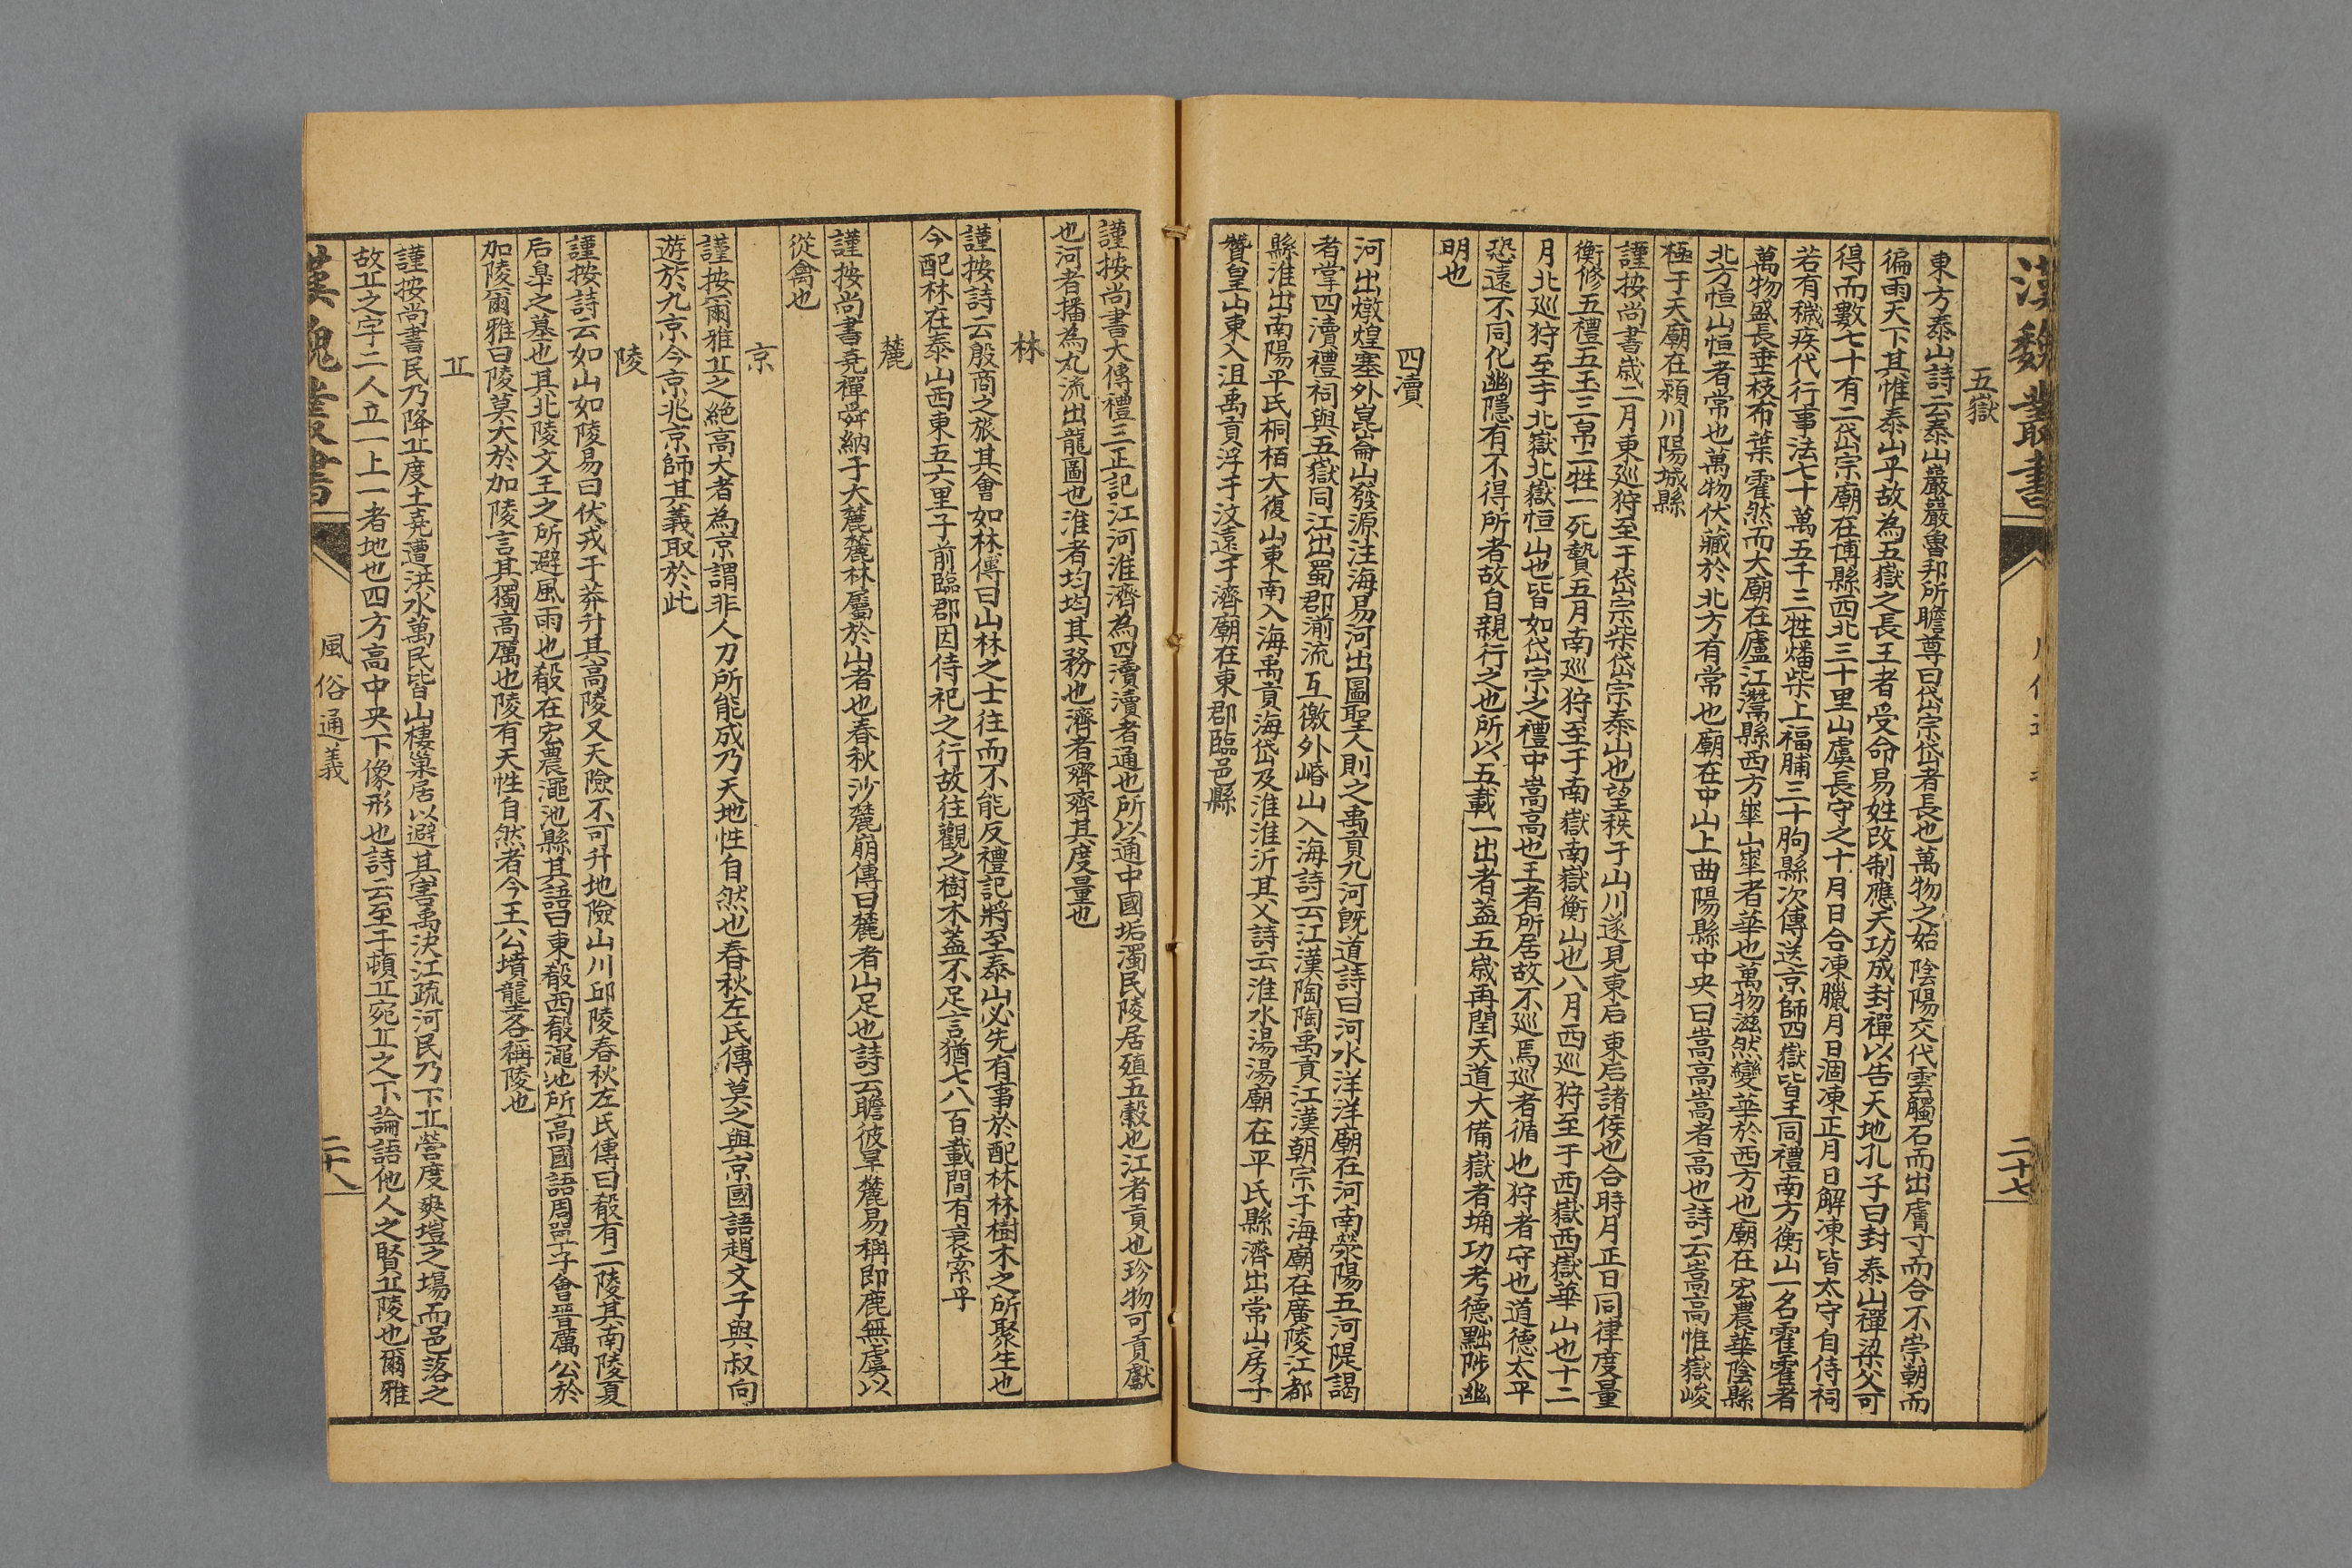 漢魏叢書
二十七
五嶽
東方泰山詩云泰山巖巖魯邦所瞻尊曰岱宗岱者長也萬物之始陰陽交代雲觸石而出膚寸而合不崇朝而
徧雨天下其惟泰山乎故為五嶽之長王者受命易姓改制應天功成封禪以告天地孔子曰封泰山禪梁父可
得而數七十有二岱宗廟在博縣西北三十里山虞長守之十月日合凍臘月日涸凍正月日解凍皆太守自侍祠
若有穢疾代行事法七十萬五千三牲燔柴上福脯三十朐縣次傳送京師四嶽皆王同禮南方衡山一名霍霍者
萬物盛長垂枝布葉霍然而大廟在廬江灊縣西方崋山崋者華也萬物滋然變華於西方也廟在宏農華陰縣
北方恒山恒者常也萬物伏藏於北方有常也廟在中山上曲陽縣中央曰嵩高嵩者高也詩云嵩高惟嶽峻
極于天廟在潁川陽城縣
謹按尚書歲二月東巡狩至于岱宗柴岱宗泰山也望秩于山川遂見東后東后諸侯也合時月正日同律度量
衡修五禮五玉三帛二牲一死贄五月南巡狩至于南嶽南嶽衡山也八月西巡狩至于西嶽西嶽華山也十二
月北巡狩至于北嶽北嶽恒山也皆如岱宗之禮中嵩高也王者所居故不巡焉巡者循也狩者守也道德太平
恐遠不同化幽隱有不得所者故自親行之也所以五載一出者蓋五歲再閏天道大備嶽者埆功考德黜陟幽
明也
四瀆
河出燉煌塞外崑崙山發源注海易河出圖聖人則之禹貢九河旣道詩曰河水洋洋廟在河南滎陽五河隄謁
者掌四瀆禮祠與五嶽同江出蜀郡湔流互徼外崏山入海詩云江漢陶陶禹貢江漢朝宗于海廟在廣陵江都
縣淮出南陽平氏桐栢大復山東南入海禹貢海岱及淮淮沂其乂詩云淮水湯湯廟在平氏縣濟出常山房子
贊皇山東入沮禹貢浮于汶達于濟廟在東郡臨邑縣
謹按尚書大傳禮三正記江河淮濟為四瀆瀆者通也所以通中國垢濁民陵居殖五穀也江者貢也珍物可貢獻
也河者播為九流出龍圖也淮者均均其務也濟者齊齊其度量也
林
謹按詩云殷商之旅其會如林傳曰山林之士往而不能反禮記將至泰山必先有事於配林林樹木之所聚生也
今配林在泰山西東五六里子前臨郡因侍祀之行故往觀之樹木蓋不足言猶七八百載間有衰索乎
麓
謹按尚書堯禪舜納于大麓麓林屬於山者也春秋沙麓崩傳曰麓者山足也詩云瞻彼旱麓易稱即鹿無虞以
從禽也
京
謹按爾雅丠之絕高大者為京謂非人力所能成乃天地性自然也春秋左氏傳莫之與京國語趙文子與叔向
遊於九京今京兆京師其義取於此
陵
謹按詩云如山如陵易曰伏戎于莽升其高陵又天險不可升地險山川邱陵春秋左氏傳曰殽有二陵其南陵夏
后皐之墓也其北陵文王之所避風雨也殽在宏農澠池縣其語曰東殽西殽澠池所高國語周單子會晉厲公於
加陵爾雅曰陵莫大於加陵言其獨高厲也陵有天性自然者今王公墳壠各稱陵也
丠
謹按尚書民乃降丠度土堯遭洪水萬民皆山棲巢居以避其害禹決江疏河民乃下丠營度爽塏之場而邑落之
故丠之字二人立一上一者地也四方高中央下像形也詩云至于頓丠宛丠之下論語他人之賢丠陵也爾雅
漢魏叢書
風俗通義
二十八